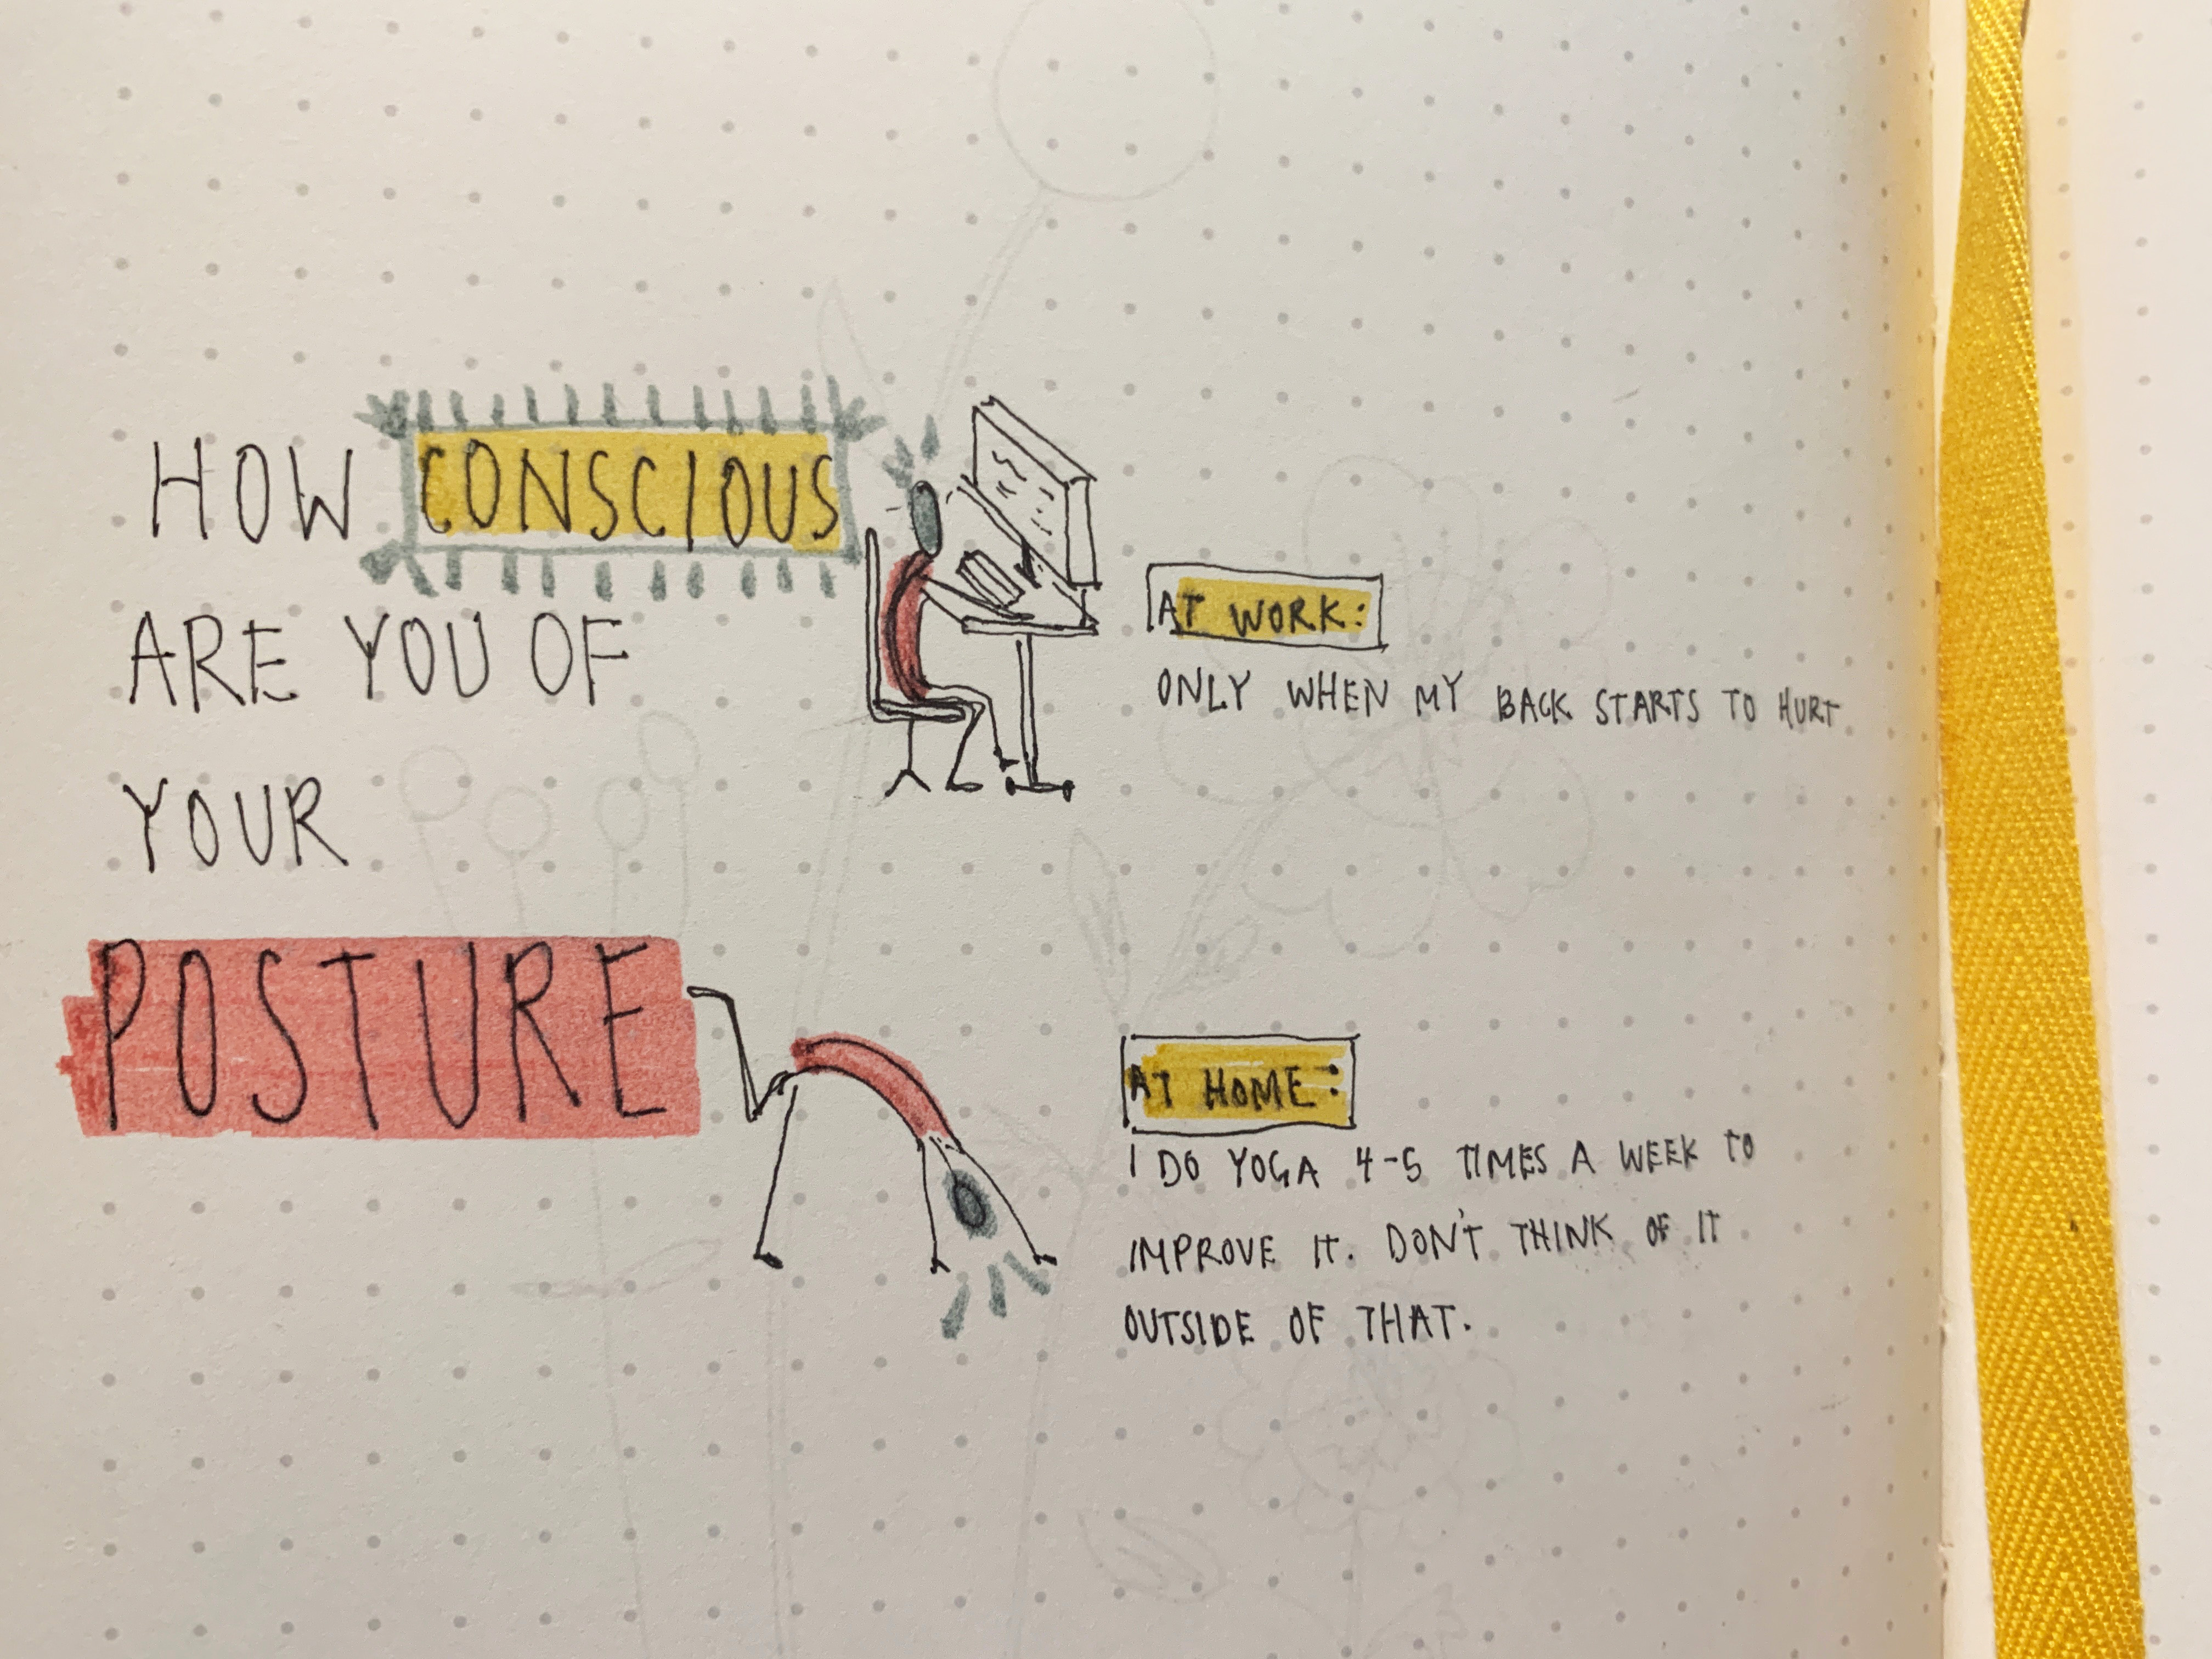 HOW CONSCIOUS
ARE YOU OF
YOUR
POSTURE
AT WORK:
ONLY WHEN MY BACK STARTS TO HURT
AT HOME:
I DO YOGA 4-5 TIMES A WEEK TO
IMPROVE IT. DON'T THINK OF IT
OUTSIDE OF THAT.